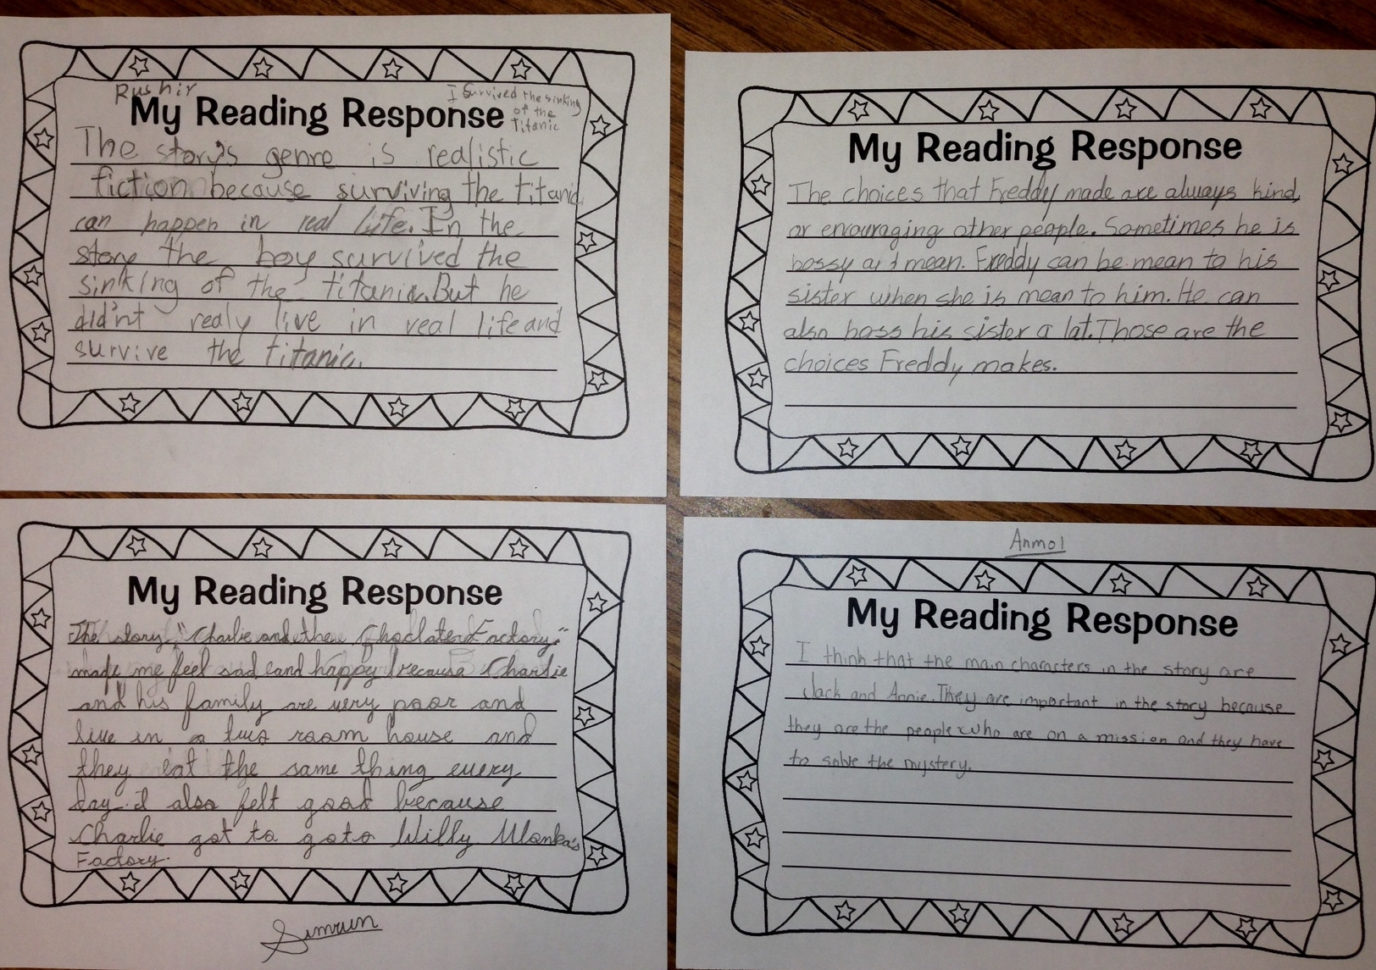 Rushir
I Survived the sinking
of the
Titanic
My Reading Response
The story's genre is realistic
fiction because surviving the titanic
can happen in real life. In the
story the boy survived the
sinking of the titanic. But he
didn't realy live in real life and
survive the titanic.
My Reading Response
The choices that Freddy made are always kind,
or encouraging other people. Sometimes he is
bossy and mean. Freddy can be mean to his
sister when she is mean to him. He can
also boss his sister a lot. Those are the
choices Freddy makes.
My Reading Response
The story, "Charlie and the Choclate Factory,"
made me feel sad and happy because Charlie
and his family are very poor and
live in a two room house and
they eat the same thing every
day. I also felt good because
Charlie got to goto Willy Wonka's
Factory.
Simrun
Anmol
My Reading Response
I think that the main characters in the story are
Jack and Annie. They are important in the story because
they are the people who are on a mission and they have
to solve the mystery.